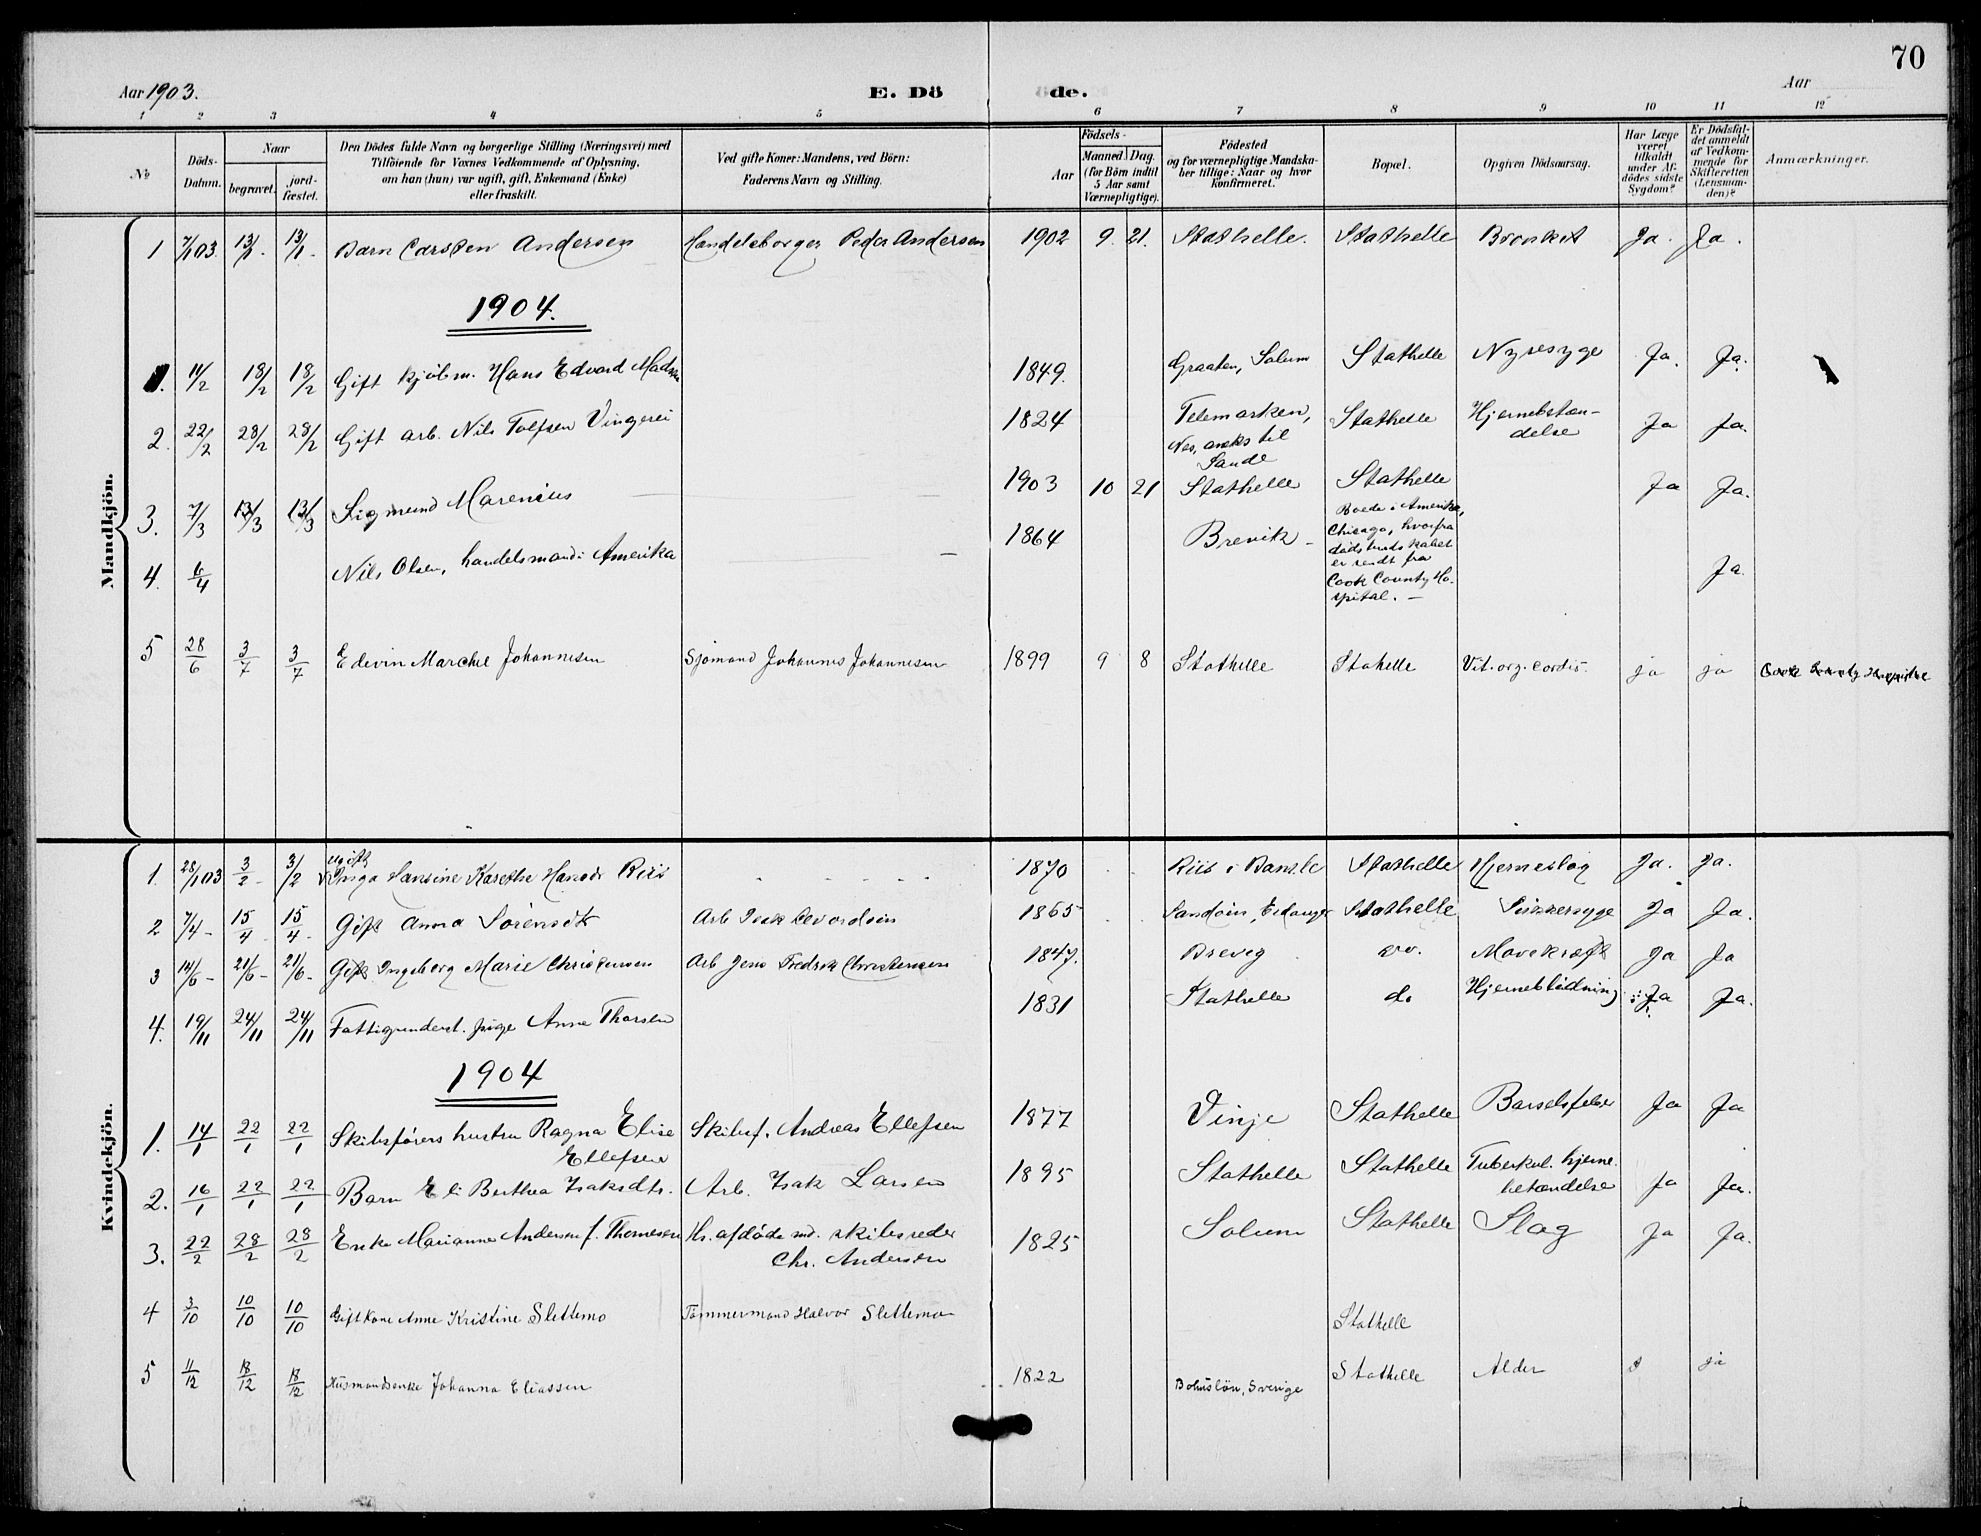 70
Aar 1903. E. Dö de. Aar
1 2 3 4 5 6 7 8 9 10 11 12
№
Döds-Datum.
Naar
begravet.
jord-fæstet.
Den Dödes fulde Navn og borgerlige Stilling (Næringsvei) med
Tilföiende for Voxnes Vedkommende af Oplysning,
om han (hun) var ugift, gift, Enkemand (Enke)
eller fraskilt.
Ved gifte Koner: Mandens, ved Börn:
Faderens Navn og Stilling.
Födsels-
Aar
Maaned Dag
(for Börn indtil
5 Aar samt
Værnepligtige).
Födested
og for værnepligtige Mandska-
ber tillige: Naar og hvor
konfirmeret.
Bopæl.
Opgiven Dödsaarsag.
Har Læge
været
tilkaldt
under Af-
dödes sidste
Sygdom?
Er Dödsfal-
det anmeldt
af Vedkom-
mende for
Skifteretten
(Lensman-
den)?
Anmærkninger.
Mandkjön.
1 7/1 03 13/1 - 13/1 - Barn Carsten Andersen Handelsborger Peder Andersen 1902 9. 21. Stathelle. Stathelle Bronkit Ja. Ja.
1904.
1. 11/2 18/2 18/2 Gift kjöbm. Hans Edvard Madsen 1849. Graaten, Solum Stathelle Nyresyge Ja. Ja.
2. 22/2 28/2 28/2 Gift arb. Nils Tolfsen Vingerei 1824 Telemarken, Nes, aneks til Sande Stathelle Hjernebetæn-delse Ja Ja.
3. 7/3 13/3 13/3 Sigmund Marenius 1903 10 21 Stathelle Stathelle Ja Ja.
4. 6/4 Nils Olsen, handelsmand i Amerika 1864 Brevik - Boede i Amerika,
Chicago, hvorfra
dödsbudskabet
er sendt fra
Cook County Ho-
spital. -
Ja.
5 28/6 3/7 3/7 Edevin Marchel Johannesen Sjömand Johannes Johannesen 1899 9 8 Stathelle Stahelle Vit. org. cordis. ja ja Cook County Hospital
Kvindekjön.
1. 28/1 03 3/2 - 3/2 ugift Inga Hansine Karethe Hansdr Riis 1870 Riis i Bamble Stathelle Hjerneslag Ja. Ja.
2 7/4 - 15/4 15/4 - Gift Anna Sörensdt Arb 1865 Sandöen, Eidanger Stathelle Sukkersyge Ja Ja.
3 14/6 - 21/6 - 21/6 - Gift Ingeborg Marie Christensen Arb Jens Fredrik Christensen 1847. Brevig do. Mavekræft Ja Ja
4. 19/11 24/11 24/11 Fattigunderst. pige Anne Thorsen 1831 Stathelle do Hjerneblödning Ja Ja.
1904
1. 14/1 22/1 22/1 Skibsförers hustru Ragna Elise Ellefsen Skibsf. Andreas Ellefsen 1877 Vinje Stathelle Barselsfeber Ja Ja
2. 16/1 22/1 22/1 Barn Eli Berthea Isaksdtr. Arb. Isak Larsen 1895 Stathelle Stathelle Tuberkul. hjerne-betændelse Ja Ja.
3. 22/2 28/2 28/2 Enke Marianne Andersen f. Thomesen Hs. afdöde md. skibsreder Chr. Andersen 1825 Solum Stathelle Slag Ja Ja.
4 3/10 10/10 10/10 Gift Kone Anne Kristine Slettemo Tömmermand Halvor Slettemo Stathelle
5 11/12 18/12 18/12 Husmandsenke Johanna Eliassen 1822 Bohuslän, Sverige Stathelle Alder ja